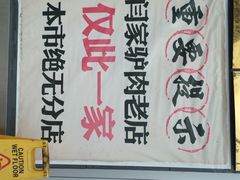 重要提示
闫家驴肉老店
仅此一家
本市绝无分店
CAUTION
WET FLOOR